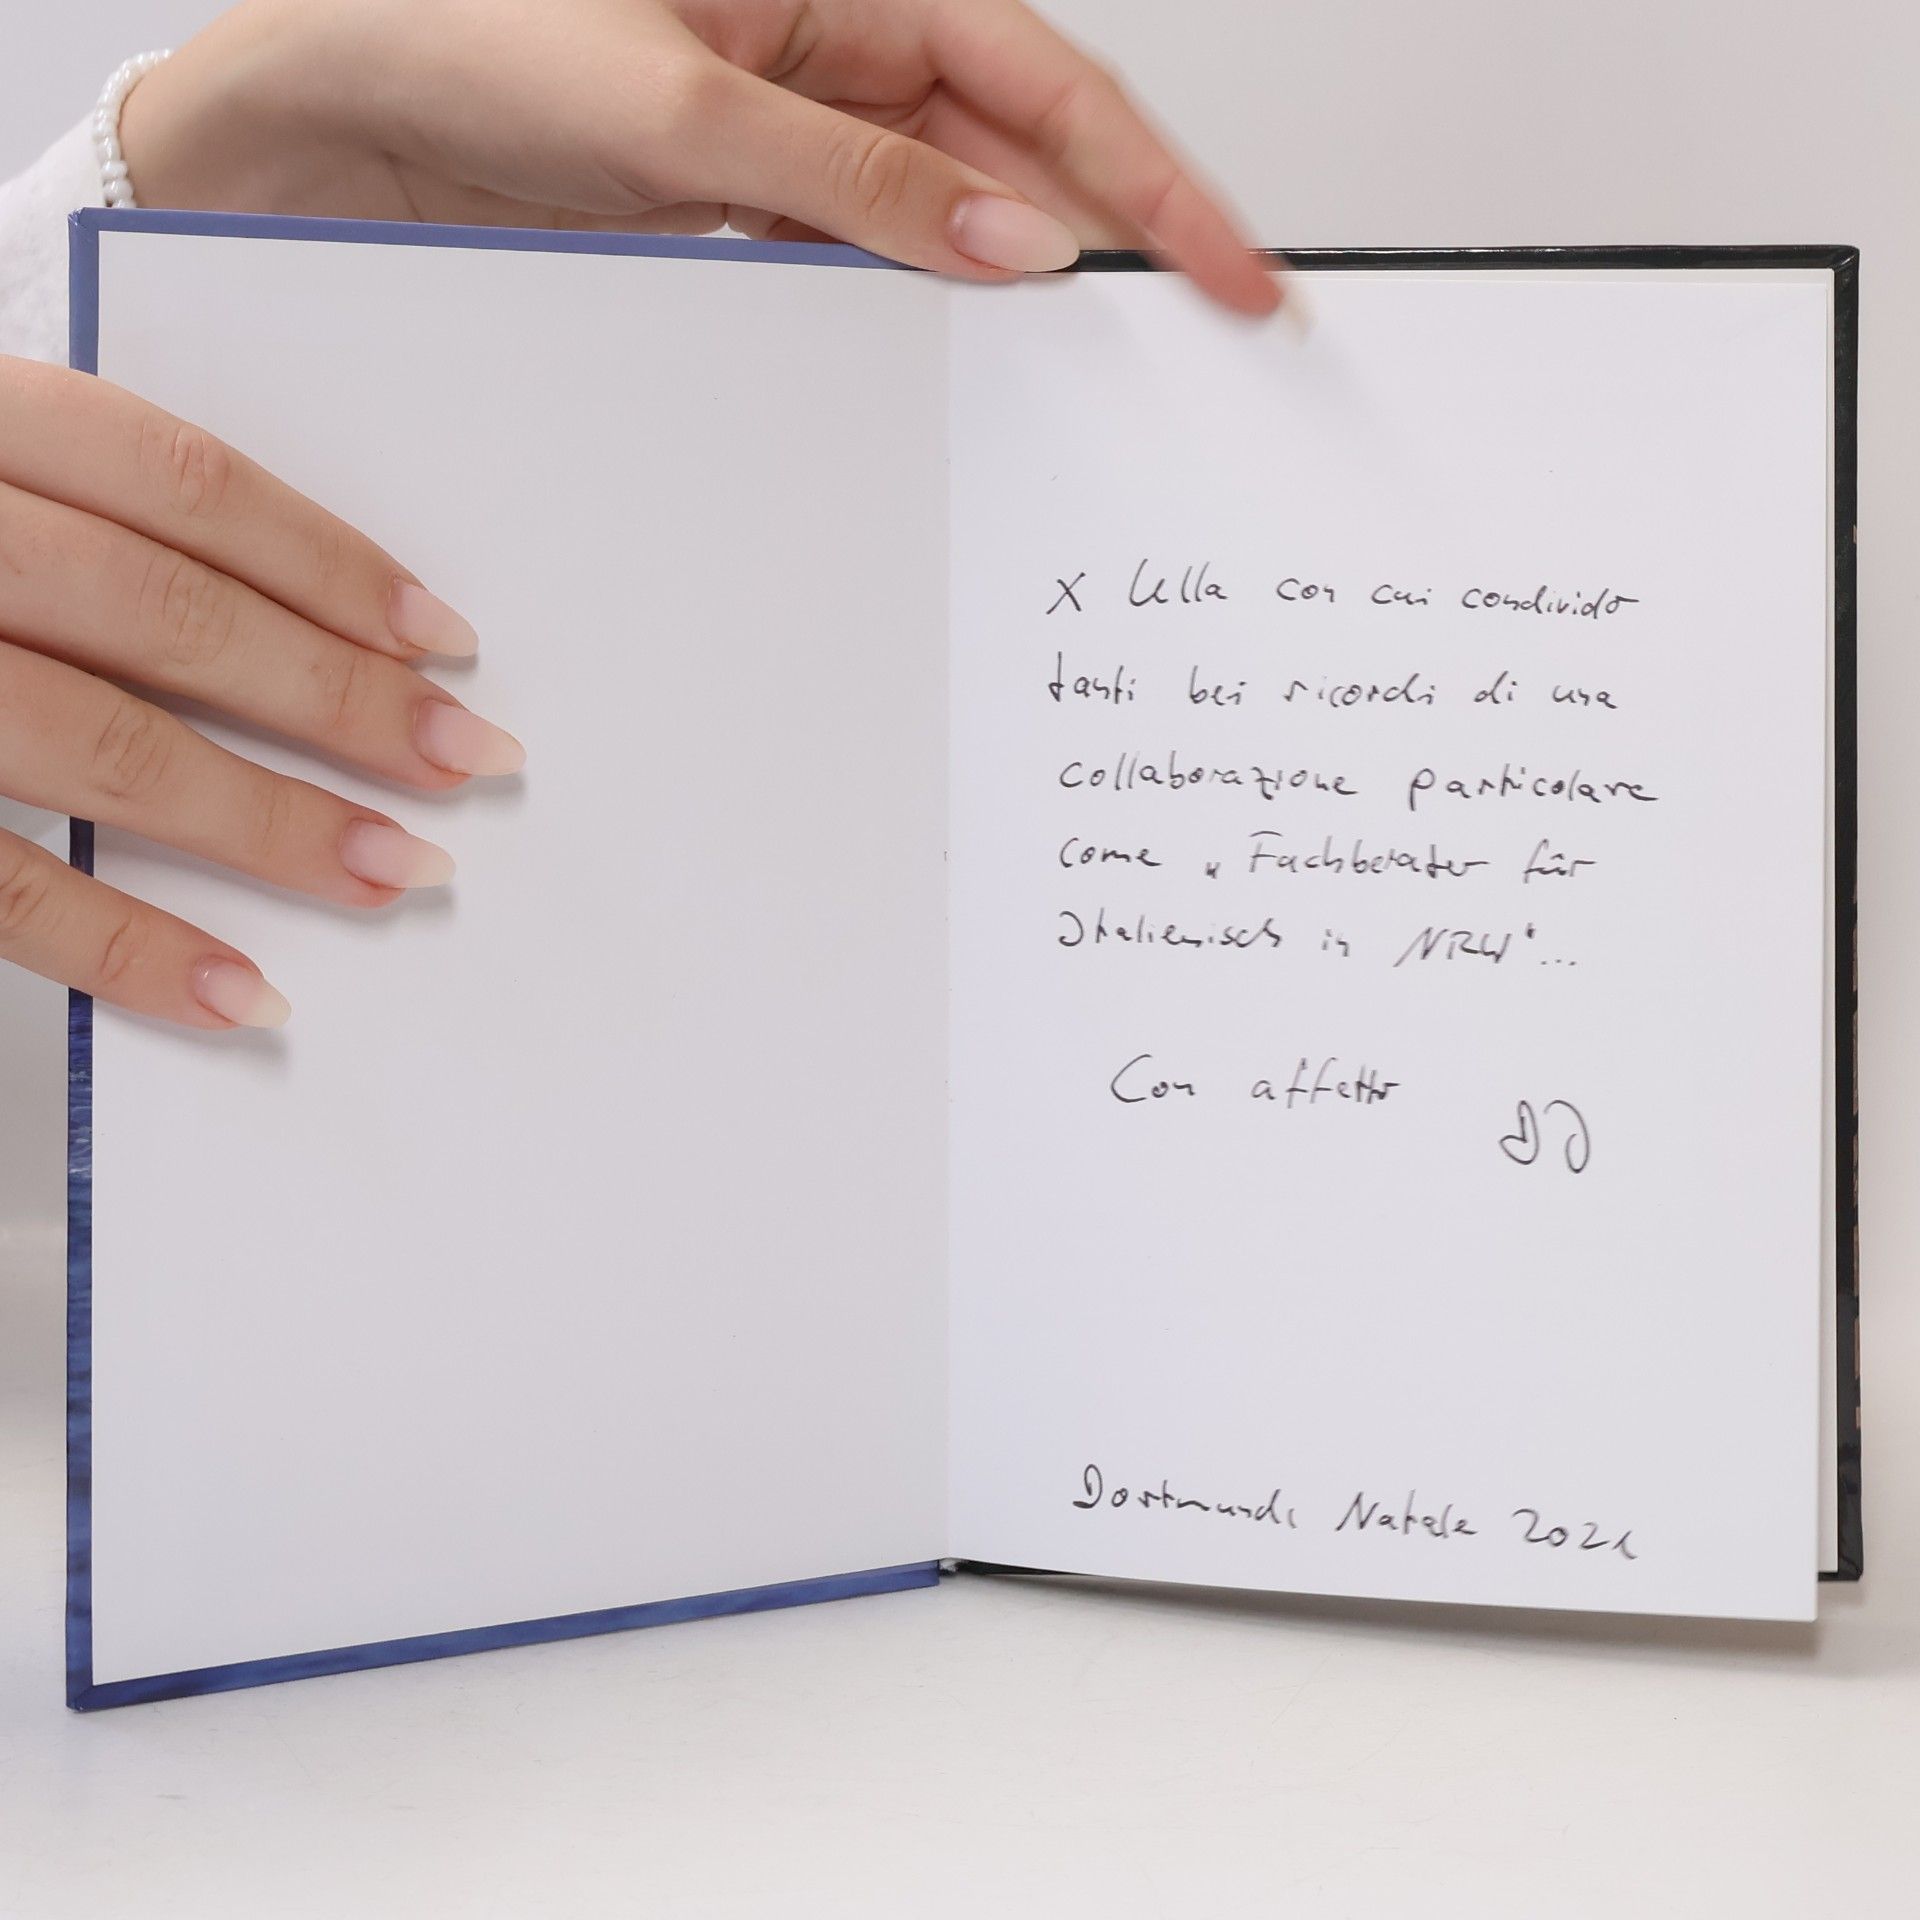 X Ulla con cui condivido
tanti bei ricordi di una
collaborazione particolare
come „Fachberater für
Italienisch in NRW“...
Con affetto
Dortmund, Natale 2021